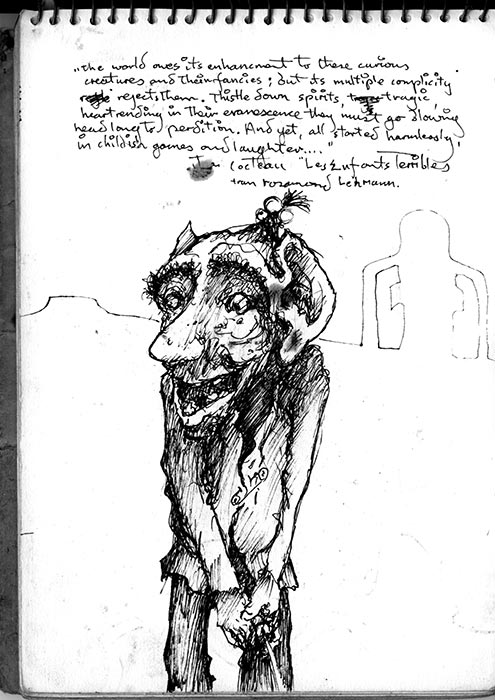 "The world owes its enhancment to these curious
creatures and their fancies; but its multiple complicity
rejects them. Thistle down spirits tragic,
heartrending in their evanescence they must go blowing
headlong to perdition. And yet, all started harmlessly,
in childish games and laughter...."
Jean Cocteau "Les Enfants Terribles
tran rosamond Lehmann.